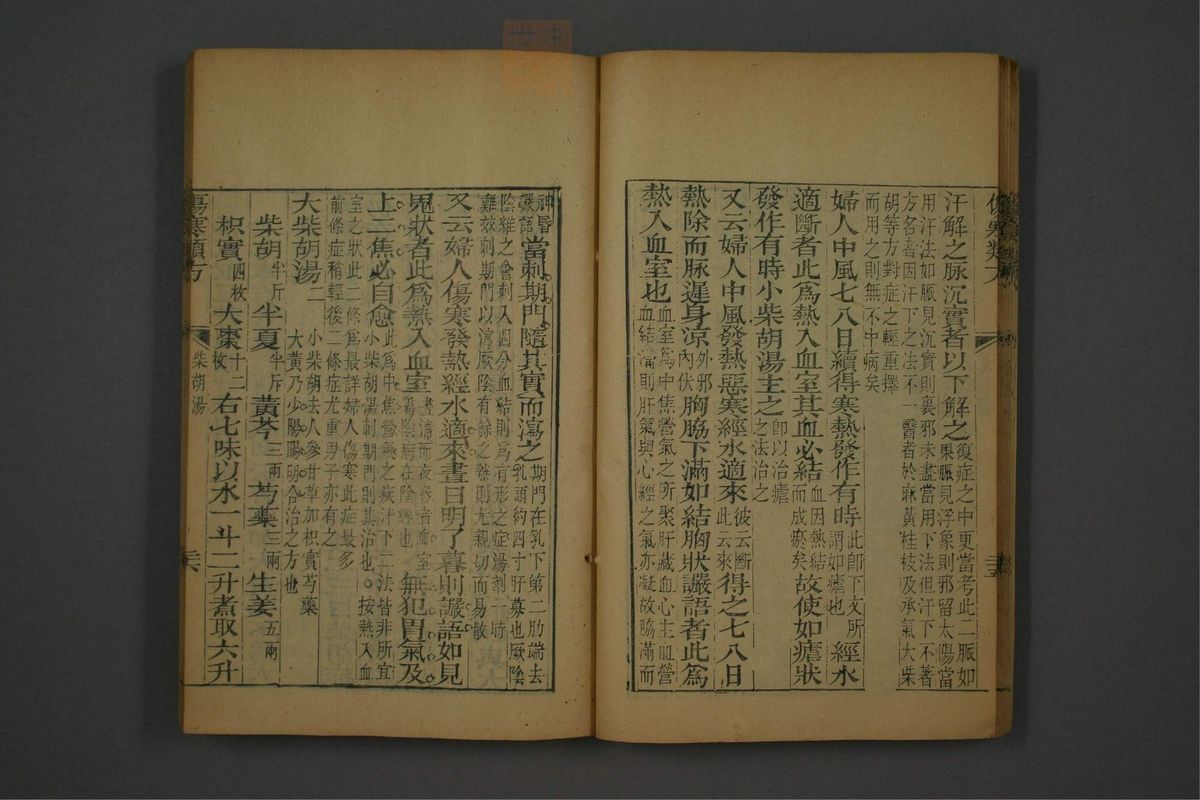 傷寒類方
汗解之脉沉實者以下解之復症之中更當考此二脈如果脈見浮象則邪留太陽當
用汗法如脈見沉實則裏邪未盡當用下法但汗下不著
方名者因汗下之法不一醫者於麻黃桂枝及承氣大柴
胡等方對症之輕重擇
而用之則無不中病矣
婦人中風七八日續得寒熱發作有時此卽下文所謂如瘧也經水
適斷者此爲熱入血室其血必結血因熱結而成瘀矣故使如瘧狀
發作有時小柴胡湯主之卽以治瘧之法治之
又云婦人中風發熱惡寒經水適來彼云斷此云來得之七八日
熱除而脉遲身凉外邪內伏胸脇下滿如結胸狀讝語者此爲
熱入血室也血室爲中焦營氣之所聚肝藏血心主血營血結滯則肝氣與心經之氣亦凝故脇滿而
二五
神昏讝語當刺期門隨其實而瀉之期門在乳下第二肋端去乳頭約四寸肝募也厥陰
陰維之會刺入四分血結則爲有形之症湯劑一時
難效刺期門以瀉厥陰有餘之熱則尤親切而易散
又云婦人傷寒發熱經水適來晝日明了暮則讝語如見
鬼狀者此爲熱入血室晝淸而夜昏者血室屬陰病在陰經也無犯胃氣及
上二焦必自愈此爲中焦營氣之疾汗下二法皆非所宜小柴胡湯刺期門則其治也。按熱入血
室之狀此二條爲最詳婦人傷寒此症最多
前條症稍輕後二條症尤重男子亦有之
大柴胡湯二 小柴胡去人參甘草加枳實芍藥大黃乃少陽陽明合治之方也
柴胡半斤 半夏半斤 黃芩三兩 芍藥三兩 生姜五兩
枳實四枚 大棗十二枚 右七味以水一斗二升煮取六升
傷寒類方
柴胡湯
二六